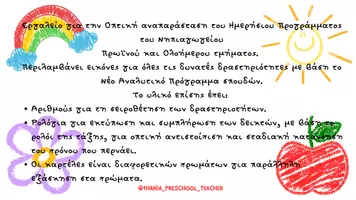 Εργαλείο για την Οπτική αναπαράσταση του Ημερήσιου Προγράμματος
του Νηπιαγωγείου
Πρωϊνού και Ολοήμερου τμήματος.
Περιλαμβάνει εικόνες για όλες τις δυνατές δραστηριότητες με βάση το
Νέο Αναλυτικό Πρόγραμμα σπουδών.
Το υλικό επίσης έπει:
• Αριθμούς για τη σειροθέτηση των δραστηριοτήτων.
• Ρολόγια για εκτύπωση και συμπλήρωση των δεικτών, με βάση το
ρολόι της τάξης, για οπτική αντιστοίπιση και σταδιακή κατανόηση
του πρόνου που περνάει.
• Οι καρτέλες είναι διαφορετικών πρωμάτων για παράλληλη
εξάσκηση στα πρώματα.
@THANIA_PRESCHOOL_TEACHER